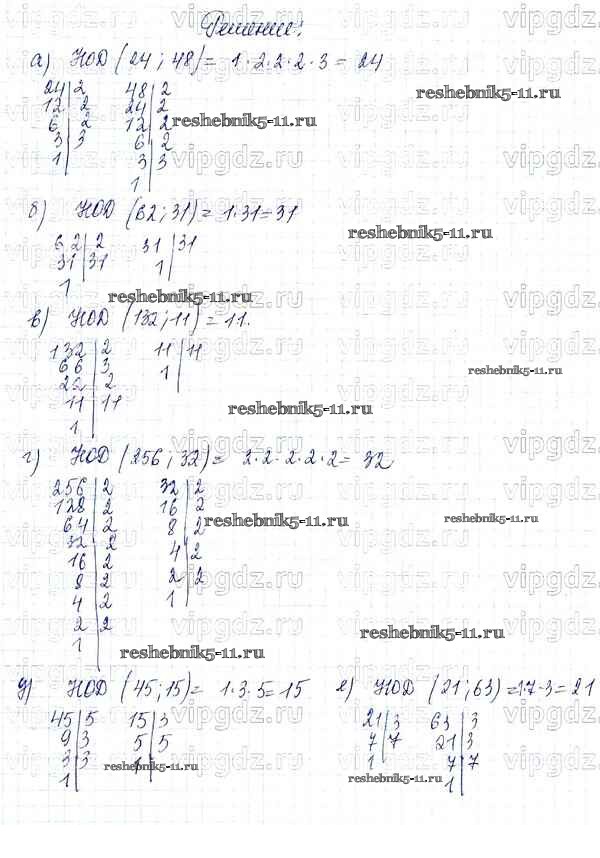 Решение:
а) НОД (24; 48) = 1·2·2·2·3 = 24
24|2 48|2
12|2 24|2
6|2 12|2
3|3 6|2
1| 3|3
1|
б) НОД (62; 31) = 1·31 = 31
62|2 31|31
31|31 1|
1|
в) НОД (132; 11) = 11.
132|2 11|11
66|3 1|
22|2
11|11
1|
г) НОД (256; 32) = 2·2·2·2·2 = 32
256|2 32|2
128|2 16|2
64|2 8|2
32|2 4|2
16|2 2|2
8|2 1|
4|2
2|2
1|
д) НОД (45; 15) = 1·3·5 = 15
45|5 15|3
9|3 5|5
3|3 1|
1|
е) НОД (21; 63) = 1·7·3 = 21
21|3 63|3
7|7 21|3
1| 7|7
1|
reshebnik5-11.ru
vipgdz.ru